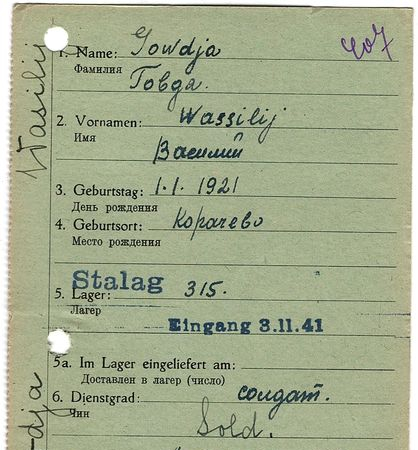 407
1. Name: Gowdja
Фамилия
Говдя.
2. Vornamen: Wassilij
Имя
Василий
3. Geburtstag: 1.1. 1921
День рождения
4. Geburtsort: Корачево
Место рождения
Stalag
5. Lager: 315.
Лагер
Eingang 3.11.41
5a. Im Lager eingeliefert am:
Доставлен в лагер (число)
6. Dienstgrad: солдат.
Чин
Sold.
Wasilij
-dja